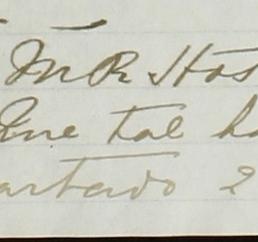 M R Hos
me tal h
artado 2